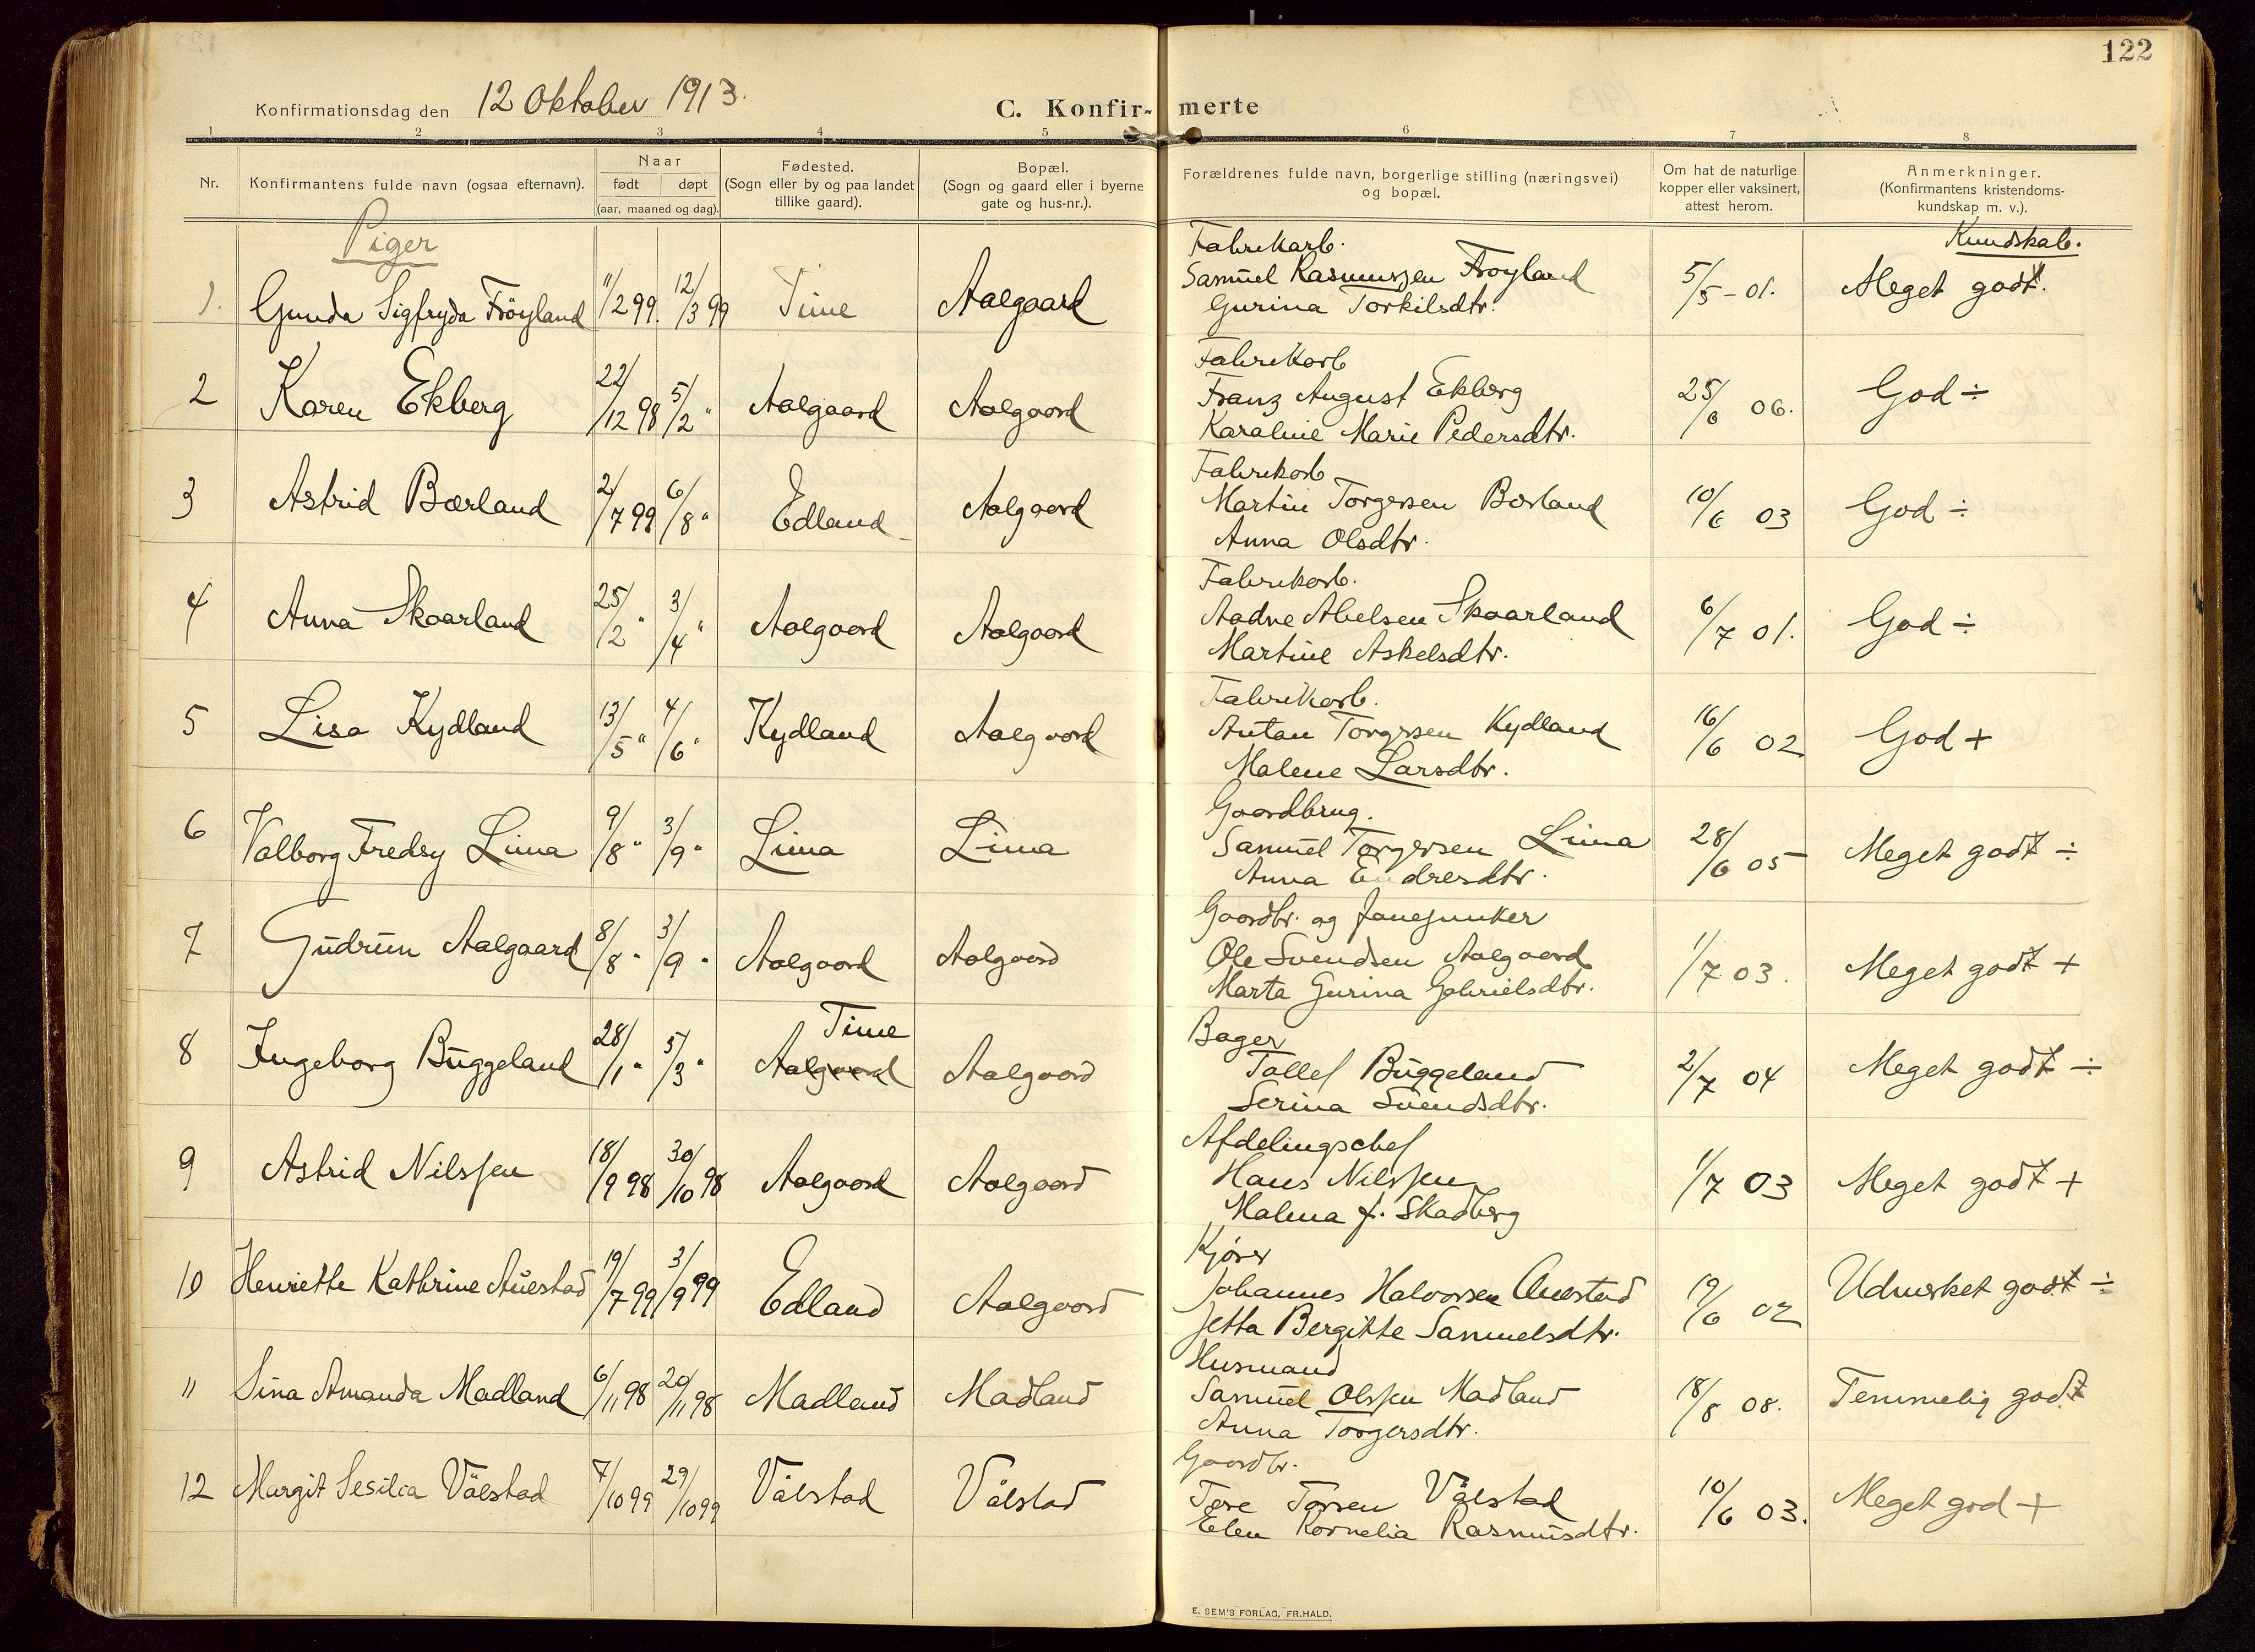 122
Konfirmationsdag den 12 Oktober 1913.
C. Konfir- merte
1 2 3 4 5 6 7 8
Nr.
Konfirmantens fulde navn (ogsaa efternavn).
Naar
født døpt
(aar, maaned og dag).
Fødested.
(Sogn eller by og paa landet
tillike gaard).
Bopæl.
(Sogn og gaard eller i byerne
gate og hus-nr.).
Forældrenes fulde navn, borgerlige stilling (næringsvei)
og bopæl.
Om hat de naturlige
kopper eller vaksinert,
attest herom.
Anmerkninger.
(Konfirmantens kristendoms-
kundskap m. v.).
Piger
Kundskab.
Fabrikarb.
1. Gunda Sigfryda Fröyland 11/2 99. 12/3 99 Time Aalgaard Samuel Rasmussen Frøyland 5/5 - 01. Meget godt.
Gurina Torkilsdtr.
Fabrikarb
2 Karen Ekberg 22/12 98 5/2 " Aalgaard Aalgaard Franz August Ekberg 25/6 06. God ÷
Karaline Marie Pedersdtr.
Fabrikarb
3 Astrid Bærland 2/7 99 6/8 " Edland Aalgaard Martin Torgersen Bærland 10/6 03 God ÷
Anna Olsdtr.
Fabrikarb.
4 Anna Skaarland 25/2 " 3/4 " Aalgaard Aalgaard Aadne Abelsen Skaarland 6/7 01. God ÷
Martine Askelsdtr.
Fabrikarb.
5 Lisa Kydland 13/5 " 4/6 " Kydland Aalgaard Antan Torgersen Kydland 16/6 02 God +
Malene Larsdtr.
Gaardbrug.
6 Valborg Fredsy Lima 9/8 " 3/9 " Lima Lima Samuel Torgersen Lima 28/6 05 Meget godt ÷
Anna Endresdtr.
Gaardbr. og
7 Gudrun Aalgaard 8/8 " 3/9 " Aalgaard Aalgaard Ole Svendsen Aalgaard 1/7 03. Meget godt +
Marta Gurina Gabrielsdtr.
Time
Bager
8 Ingeborg Buggeland 28/1 " 5/3 " Aalgaard Aalgaard Tollef Buggeland 2/7 04 Meget godt ÷
Serina Svendsdtr.
Afdelingschef
9 Astrid Nilssen 18/9 98 30/10 98 Aalgaard Aalgaard Hans Nilssen 1/7 03 Meget godt +
Malena f. Skadberg
Kjører
10 Henriette Kathrine Auestad 19/7 99 3/9 99 Edland Aalgaard Johannes Halvorsen Auestad 19/6 02 Udmerket godt ÷
Jetta Bergitte Samuelsdtr.
Husmand
11 Sina Amanda Madland 6/11 98 20/11 98 Madland Madland Samuel Olssen Madland 18/8 08. Temmelig godt
Anna Torgersdtr.
Gaardbr.
12 Margit Sesilia Vålstad 7/10 99 29/10 99 Vålstad Vålstad Tore Torsen Vålstad 10/6 03. Meget god +
Elen Kornelia Rasmusdtr.
E. SEM'S FORLAG, FR.HALD.